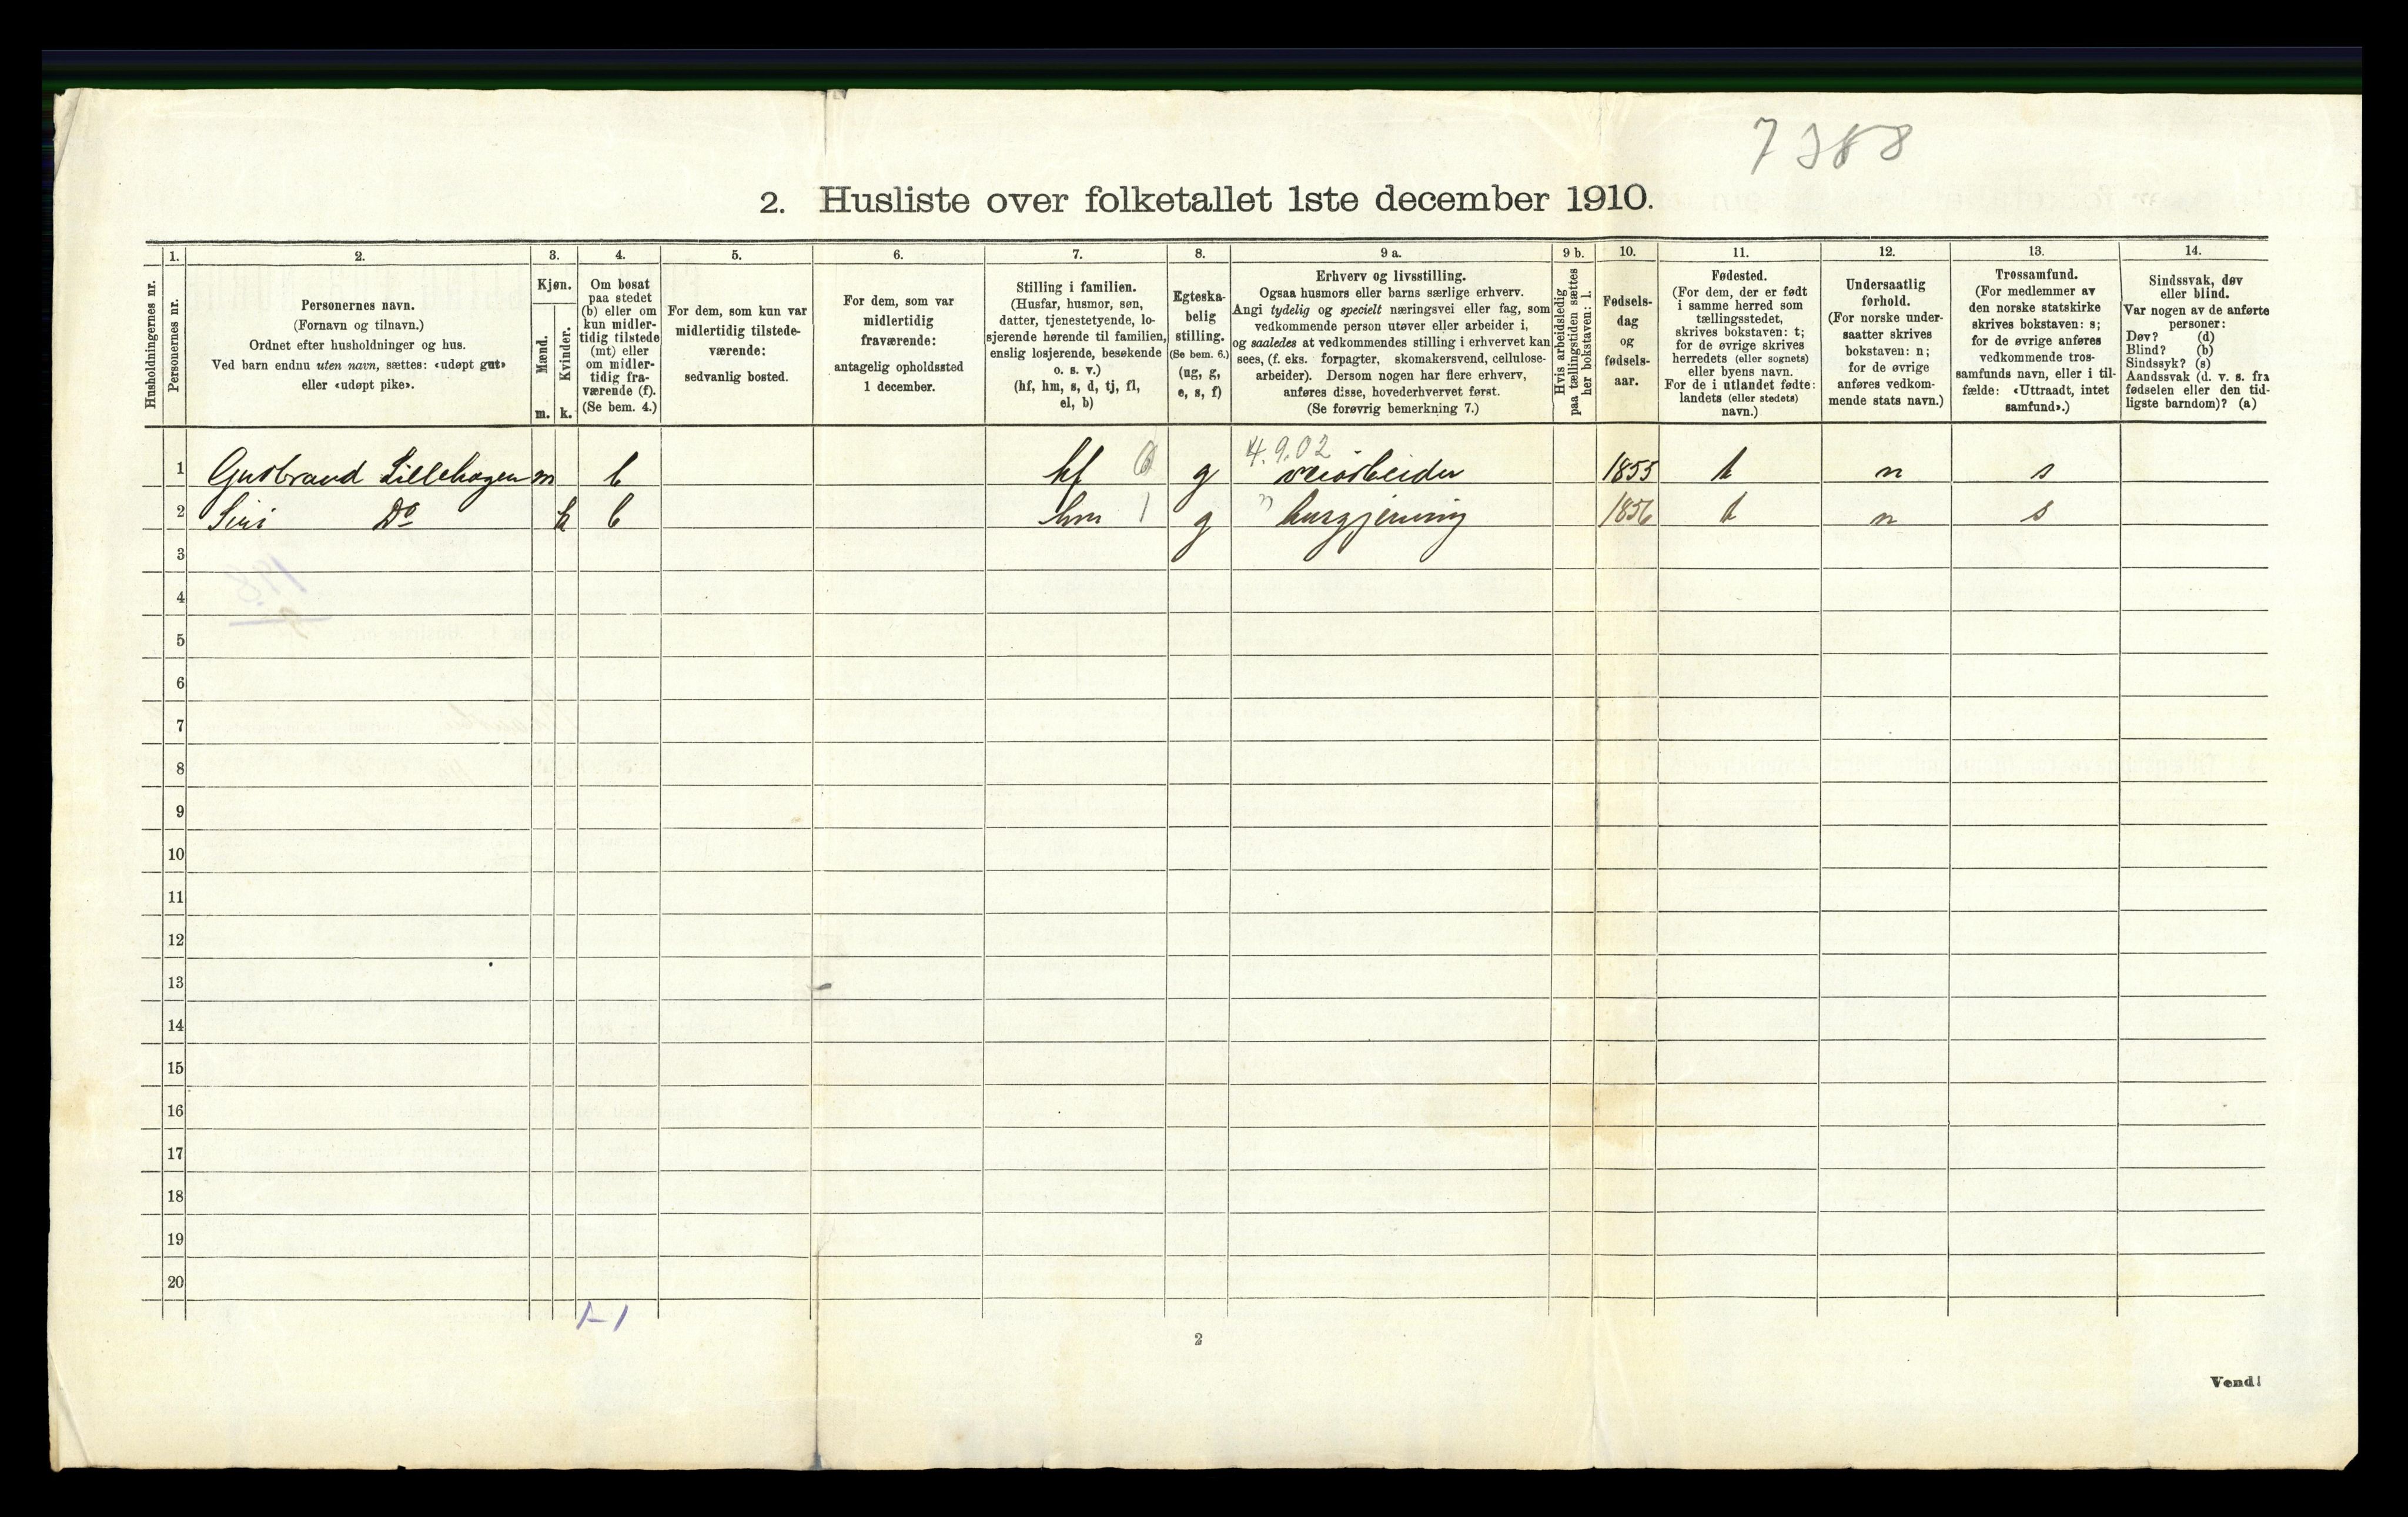 7388
2. Husliste over folketallet 1ste december 1910.
Husholdningernes nr.
1.
Personernes nr.
2.
Personernes navn.
(Fornavn og tilnavn.)
Ordnet efter husholdninger og hus.
Ved barn endnu uten navn, sættes: «udøpt gut»
eller «udøpt pike».
3.
Kjøn.
Mænd.
m.
Kvinder.
k.
4.
Om bosat
paa stedet
(b) eller om
kun midler-
tidig tilstede
(mt) eller
om midler-
tidig fra-
værende (f).
(Se bem. 4.)
5.
For dem, som kun var
midlertidig tilstede-
værende:
sedvanlig bosted.
6.
For dem, som var
midlertidig
fraværende:
antagelig opholdssted
1 december.
7.
Stilling i familien.
(Husfar, husmor, søn,
datter, tjenestetyende, lo-
sjerende hørende til familien,
enslig losjerende, besøkende
o. s. v.)
(hf, hm, s, d, tj, fl,
el, b)
8.
Egteska-
belig
stilling.
(Se bem. 6.)
(ug, g,
e, s, f)
9 a.
Erhverv og livsstilling.
Ogsaa husmors eller barns særlige erhverv.
Angi tydelig og specielt næringsvei eller fag, som
vedkommende person utøver eller arbeider i,
og saaledes at vedkommendes stilling i erhvervet kan
sees, (f. eks. forpagter, skomakersvend, cellulose-
arbeider). Dersom nogen har flere erhverv,
anføres disse, hovederhvervet først.
(Se forøvrig bemerkning 7.)
9 b.
Hvis arbeidsledig
paa tællingstiden sættes
her bokstaven: l.
10.
Fødsels-
dag
og
fødsels-
aar.
11.
Fødested.
(For dem, der er født
i samme herred som
tællingsstedet,
skrives bokstaven: t;
for de øvrige skrives
herredets (eller sognets)
eller byens navn.
For de i utlandet fødte:
landets (eller stedets)
navn.)
12.
Undersaatlig
forhold.
(For norske under-
saatter skrives
bokstaven: n;
for de øvrige
anføres vedkom-
mende stats navn.)
13.
Trossamfund.
(For medlemmer av
den norske statskirke
skrives bokstaven: s;
for de øvrige anføres
vedkommende tros-
samfunds navn, eller i til-
fælde: «Uttraadt, intet
samfund».)
14.
Sindssvak, døv
eller blind.
Var nogen av de anførte
personer:
Døv? (d)
Blind? (b)
Sindssyk? (s)
Aandssvak (d. v. s. fra
fødselen eller den tid-
ligste barndom)? (a)
4.9.02
1 Gudbrand Lillehagen m b hf 0 g veiarbeider 1855 t n s
2 Siri Do k b hm 1 g " husgjerning 1856 t n s
3
4
5
6
7
8
9
10
11
12
13
14
15
16
17
18
19
20
1-1
2
Vend!